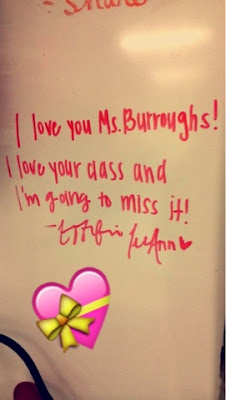 I love you Ms. Burroughs!
I love your class and
I'm going to miss it!